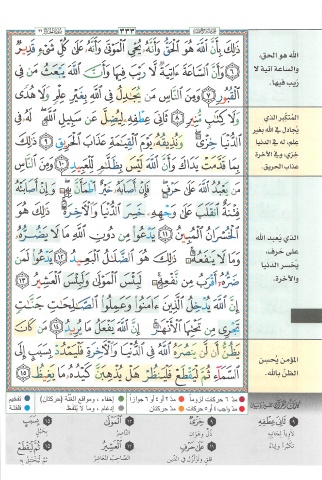 ٣٣٣
ذَٰلِكَ بِأَنَّ ٱللَّهَ هُوَ ٱلْحَقُّ وَأَنَّهُۥ يُحْىِ ٱلْمَوْتَىٰ وَأَنَّهُۥ عَلَىٰ كُلِّ شَىْءٍ قَدِيرٌ
٦ وَأَنَّ ٱلسَّاعَةَ ءَاتِيَةٌ لَّا رَيْبَ فِيهَا وَأَنَّ ٱللَّهَ يَبْعَثُ مَن فِى
ٱلْقُبُورِ ٧ وَمِنَ ٱلنَّاسِ مَن يُجَٰدِلُ فِى ٱللَّهِ بِغَيْرِ عِلْمٍ وَلَا هُدًى
وَلَا كِتَٰبٍ مُّنِيرٍ ٨ ثَانِىَ عِطْفِهِۦ لِيُضِلَّ عَن سَبِيلِ ٱللَّهِ لَهُۥ فِى
ٱلدُّنْيَا خِزْىٌ وَنُذِيقُهُۥ يَوْمَ ٱلْقِيَٰمَةِ عَذَابَ ٱلْحَرِيقِ ٩ ذَٰلِكَ
بِمَا قَدَّمَتْ يَدَاكَ وَأَنَّ ٱللَّهَ لَيْسَ بِظَلَّٰمٍ لِّلْعَبِيدِ ١٠ وَمِنَ ٱلنَّاسِ
مَن يَعْبُدُ ٱللَّهَ عَلَىٰ حَرْفٍ فَإِنْ أَصَابَهُۥ خَيْرٌ ٱطْمَأَنَّ بِهِۦ وَإِنْ أَصَابَتْهُ
فِتْنَةٌ ٱنقَلَبَ عَلَىٰ وَجْهِهِۦ خَسِرَ ٱلدُّنْيَا وَٱلْءَاخِرَةَ ذَٰلِكَ هُوَ
ٱلْخُسْرَانُ ٱلْمُبِينُ ١١ يَدْعُوا۟ مِن دُونِ ٱللَّهِ مَا لَا يَضُرُّهُۥ
وَمَا لَا يَنفَعُهُۥ ذَٰلِكَ هُوَ ٱلضَّلَٰلُ ٱلْبَعِيدُ ١٢ يَدْعُوا۟ لَمَن
ضَرُّهُۥٓ أَقْرَبُ مِن نَّفْعِهِۦ لَبِئْسَ ٱلْمَوْلَىٰ وَلَبِئْسَ ٱلْعَشِيرُ ١٣
إِنَّ ٱللَّهَ يُدْخِلُ ٱلَّذِينَ ءَامَنُوا۟ وَعَمِلُوا۟ ٱلصَّٰلِحَٰتِ جَنَّٰتٍ
تَجْرِى مِن تَحْتِهَا ٱلْأَنْهَٰرُ إِنَّ ٱللَّهَ يَفْعَلُ مَا يُرِيدُ ١٤ مَن كَانَ
يَظُنُّ أَن لَّن يَنصُرَهُ ٱللَّهُ فِى ٱلدُّنْيَا وَٱلْءَاخِرَةِ فَلْيَمْدُدْ بِسَبَبٍ إِلَى
ٱلسَّمَآءِ ثُمَّ لْيَقْطَعْ فَلْيَنظُرْ هَلْ يُذْهِبَنَّ كَيْدُهُۥ مَا يَغِيظُ ١٥
الله هو الحق،
والساعة آتية لا
ريب فيها.
المتكبر الذي
يجادل في الله بغير
علم، له في الدنيا
خزي، وفي الآخرة
عذاب الحريق.
الذي يعبد الله
على حرف،
يخسر الدنيا
والآخرة.
المؤمن يُحسن
الظن بالله.
مدّ ٦ حركات لزوماً مدّ ٢ أو ٤ أو ٦ جوازاً إخفاء، ومواقع الغنّة (حركتان) تفخيم
مدّ واجب ٤ أو ٥ حركات مدّ حركتان إدغام، وما لا يُلفظ قلقلة
٩ ثَانِىَ عِطْفِهِ
١١ عَلَىٰ حَرْفٍ
١٣ ٱلْمَوْلَىٰ
الناصر
١٣ ٱلْعَشِيرُ
١٥ بِسَبَبٍ
بحبل
١٥ ثُمَّ لْيَقْطَعْ